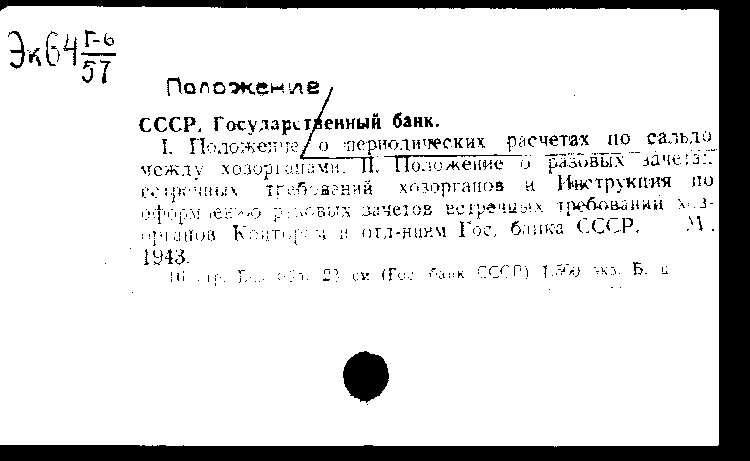 Эк64 Г-6
57
Положение
СССР. Государственный банк.
I. Положение о периодических расчетах по сальдо
между хозорганами. II. Положение о разовых зачетах
встречных требований хозорганов и Инструкция по
оформлению разовых зачетов встречных требований хоз-
органов Конторам и отд-ниям Гос. банка СССР. М.,
1943.
10 стр. Без обл. 23 см (Гос. банк СССР) экз. Б. ц.